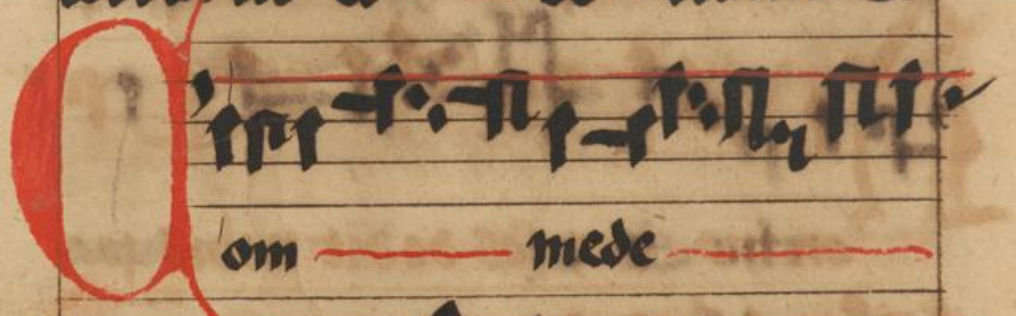 Com mede